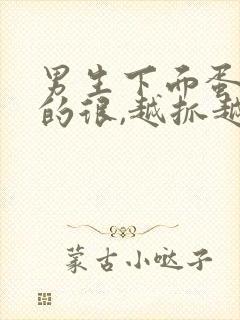 男生下面蛋
的很,越抓越
蒙古小哒子